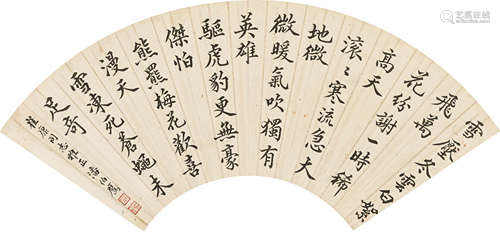 雪壓冬雲白絮
飛萬
花紛謝一時稀
高天
滾〻寒流急大
地微
微暖氣吹獨有
英雄
驅虎豹更無豪
傑怕
熊羆梅花歡喜
漫天
雪凍死蒼蠅未
足奇
原同志雅正潘伯鷹